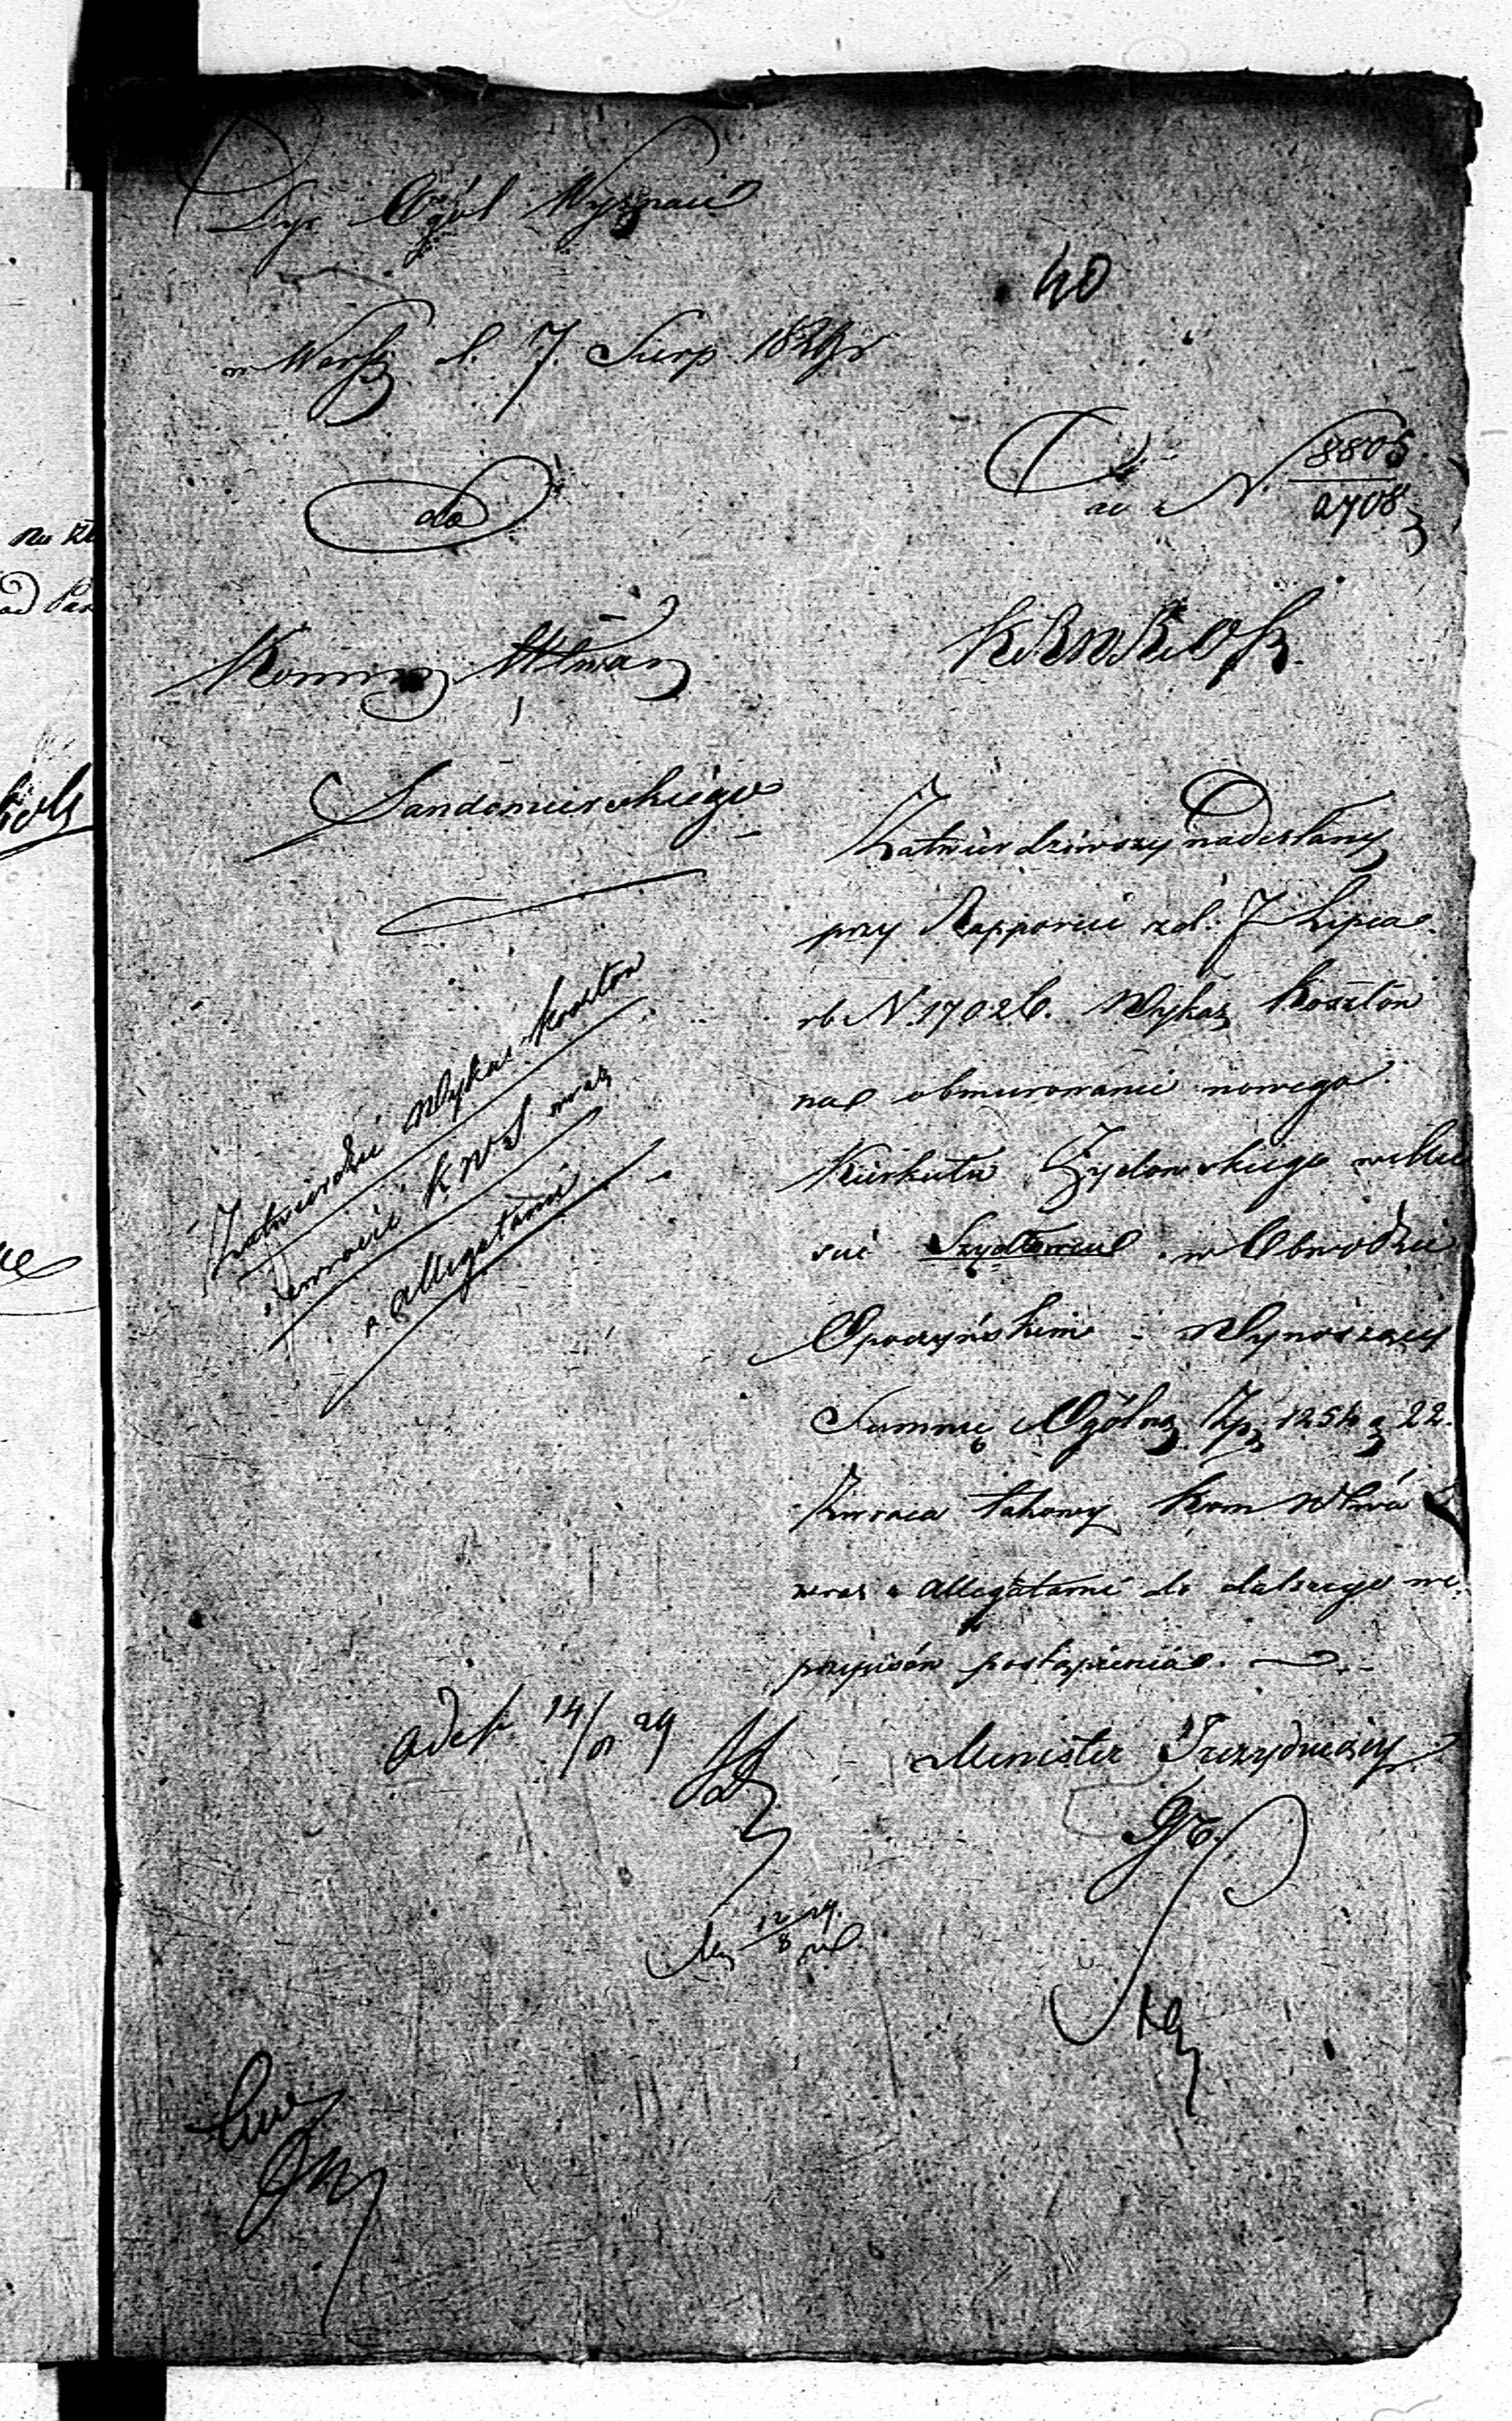 Dyr Ogól Wyznań
40
w Warsz d. 7. Sierp 1829 r
do
ad N. 8805
2708
Kommy Wtwa
K. R. W. R. i O. P.
Sandomierskiego
Zatwierdziwszy nadesłany
przy Rapporcie z d: 7 Lipca
rb N. 17026. Wykaz kosztów
na obmurowanie nowego
Kirkutu Żydowskiego w Mie
ście Szydłowcu w Obwodzie
Opoczyńskim - Wynoszący
Summę Ogólną Zp. 1254 g 22.
Zwraca takowy Kom Wtwa
wraz z allegatami do dalszego we.
przepisów postąpienia.
Zatwierdzić Wykaz kosztów
zwrócić K W S wraz
z allegatami
Minister Prezydujący
14/8 29
12/8 29.